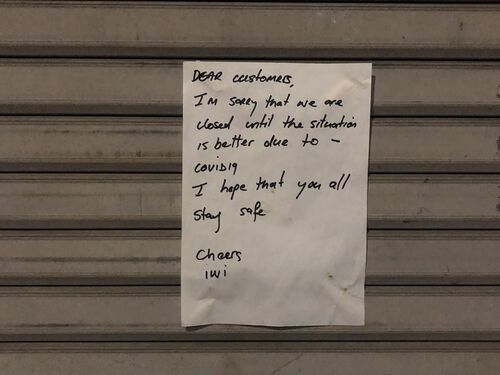 DEAR customers,
I'm sorry that we are
closed until the situation
is better due to -
COVID19
I hope that you all
stay safe
Cheers
iwi